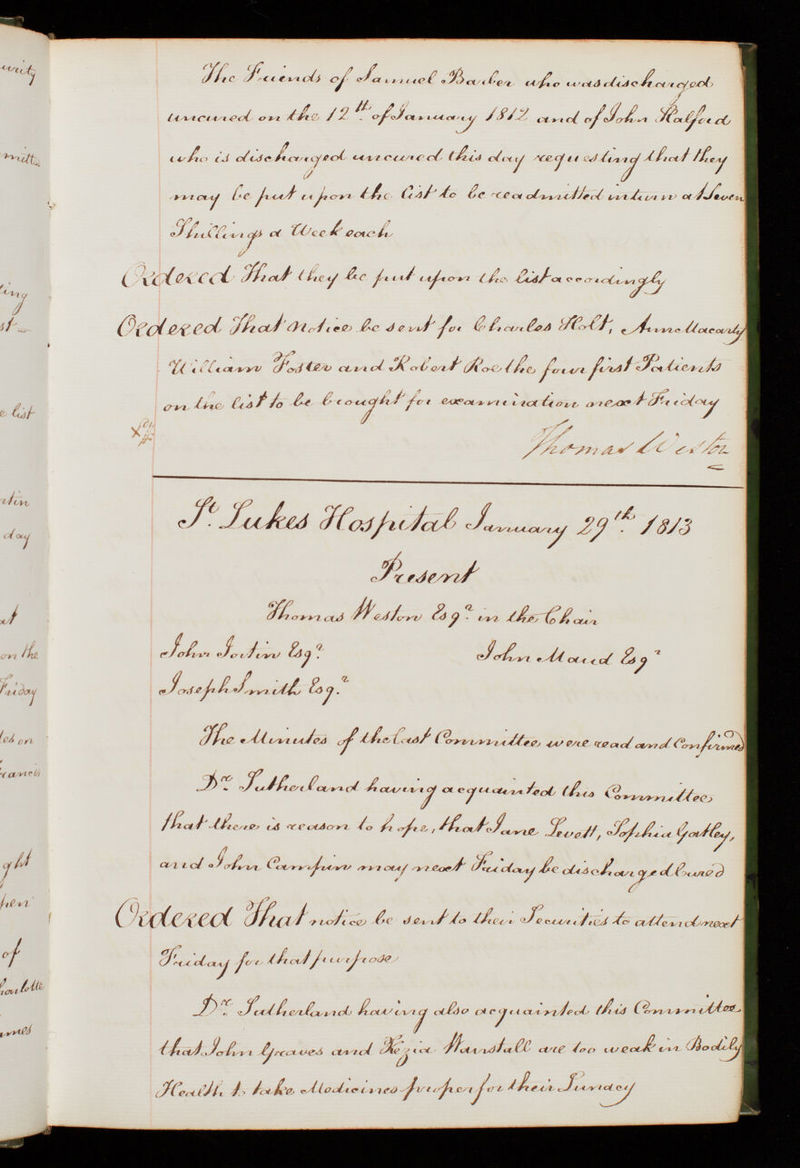 The Friends of Samuel Barber who was discharged
uncured on the 12th. of January 1812 and of John Halford
who is discharged uncured this day requesting that they
may be put upon the list to be readmitted in turn at Seven
Shillings a Week each
Ordered That they be put upon the list accordingly
Ordered That Notice be sent for Charles Holt, Anne Macarty
William Foster and Robert Roe the four first Patients
on the list to be brought for examination next Friday
Thomas Weston
St. Lukes Hospital January 29th. 1813
Present
Thomas Weston Esqr. in the Chair
John Jortin Esqr.
John Maud Esqr
Joseph Smith Esqr.
The Minutes of the last Committee were read and Confirmed
Dr. Sutherland having acquainted this Committee
that there is reason to hope, that Jane Levett, Sophia Gatley,
and John Campin may next Friday be discharged Cured
Ordered That notice be sent to their Securities to attend next
Friday for that purpose
Dr. Sutherland having also acquainted this Committee
that John Greaves and Kezia Wanstall are too weak in Bodily
Health to take Medicines proper for their Lunacy